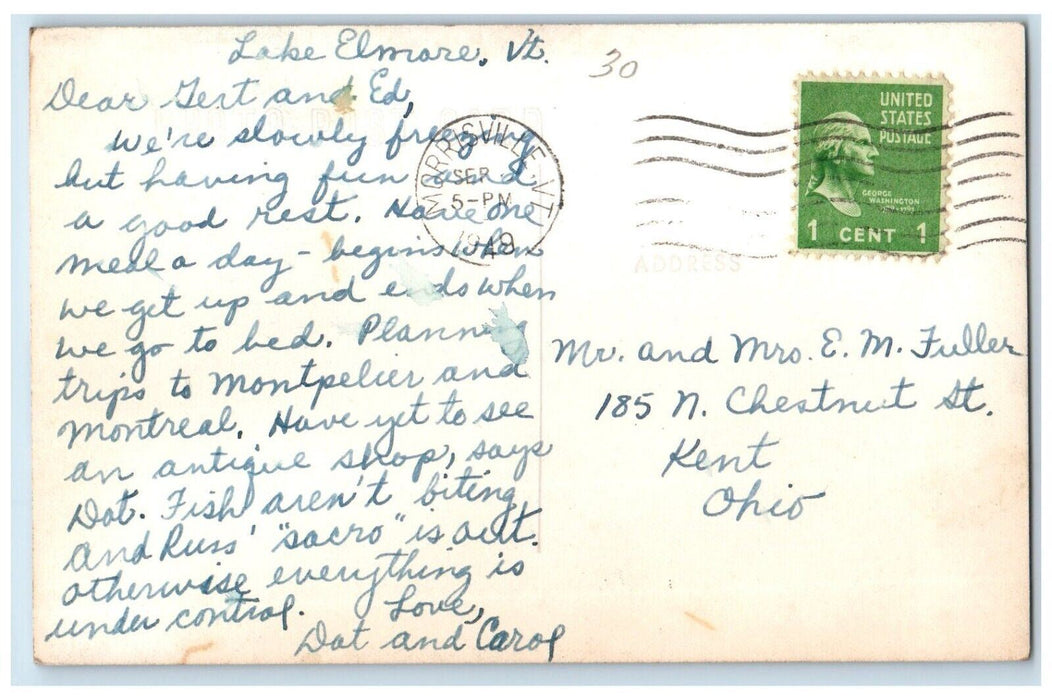 Lake Elmore, Vt.
Dear Gert and Ed,
We're slowly freezing
but having fun and
a good rest. Have one
meal a day - begins when
we get up and ends when
we go to bed. Planned
trips to Montpelier and
Montreal. Have yet to see
an antique shop, says
Dot. Fish aren't biting
and Russ' "sacro" is out.
otherwise everything is
under control. Love,
Dot and Carol
30
MORRISVILLE, VT.
SEP
5-PM
1949
UNITED
STATES
POSTAGE
GEORGE
WASHINGTON
1 CENT 1
ADDRESS
Mr. and Mrs. E. M. Fuller
185 N. Chestnut St.
Kent
Ohio